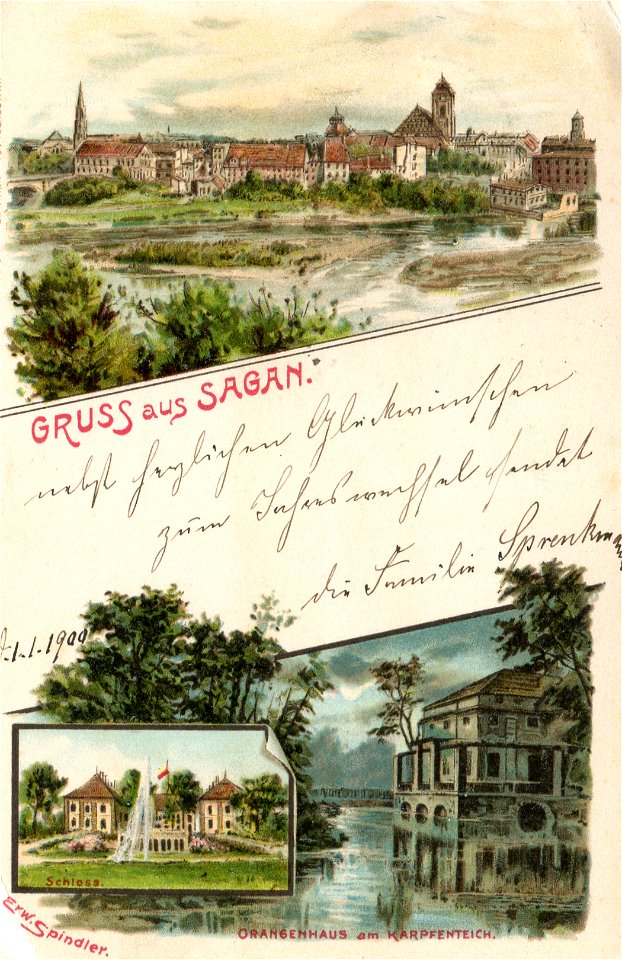 GRUSS aus SAGAN.
nebst herzlichen Glückwünschen
zum Jahreswechsel sendet
die Familie Sprenkmann
d. 1.1.1900
Schloss.
Erw. Spindler.
ORANGENHAUS am KARPFENTEICH.